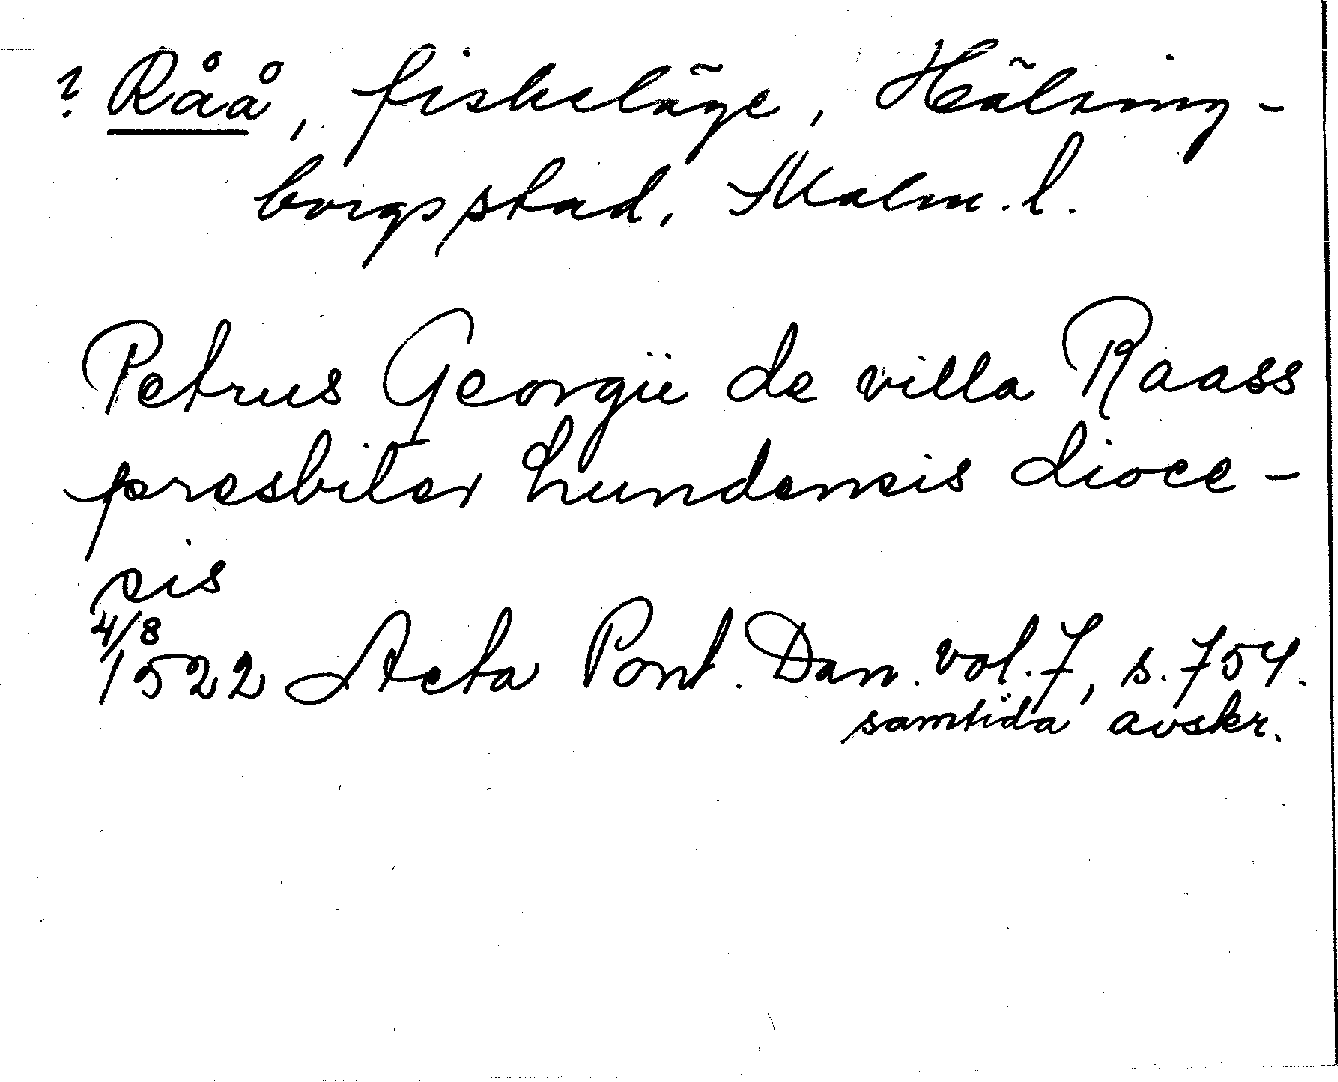 ? Råå, fiskeläge, Hälsing-
borgs stad, Malm. l.
Petrus Georgii de villa Raass
presbiter Lundensis dioce-
sis
4/8
1522 Acta Pont. Dan. vol. 7, s. 754.
samtida avskr.